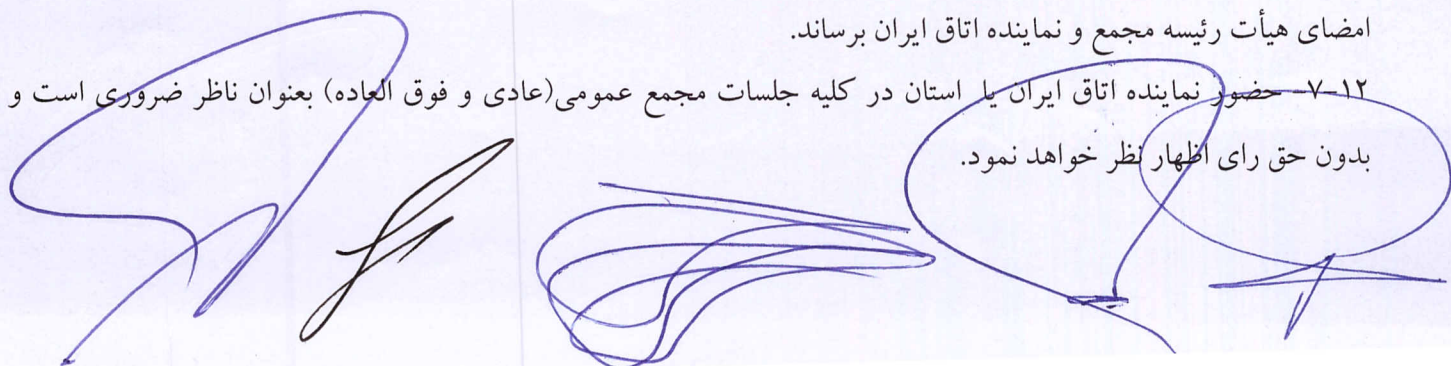 امضای هیأت رئیسه مجمع و نماینده اتاق ایران برساند.
۱۲-۷- حضور نماینده اتاق ایران یا استان در کلیه جلسات مجمع عمومی(عادی و فوق العاده) بعنوان ناظر ضروری است و
بدون حق رای اظهار نظر خواهد نمود.